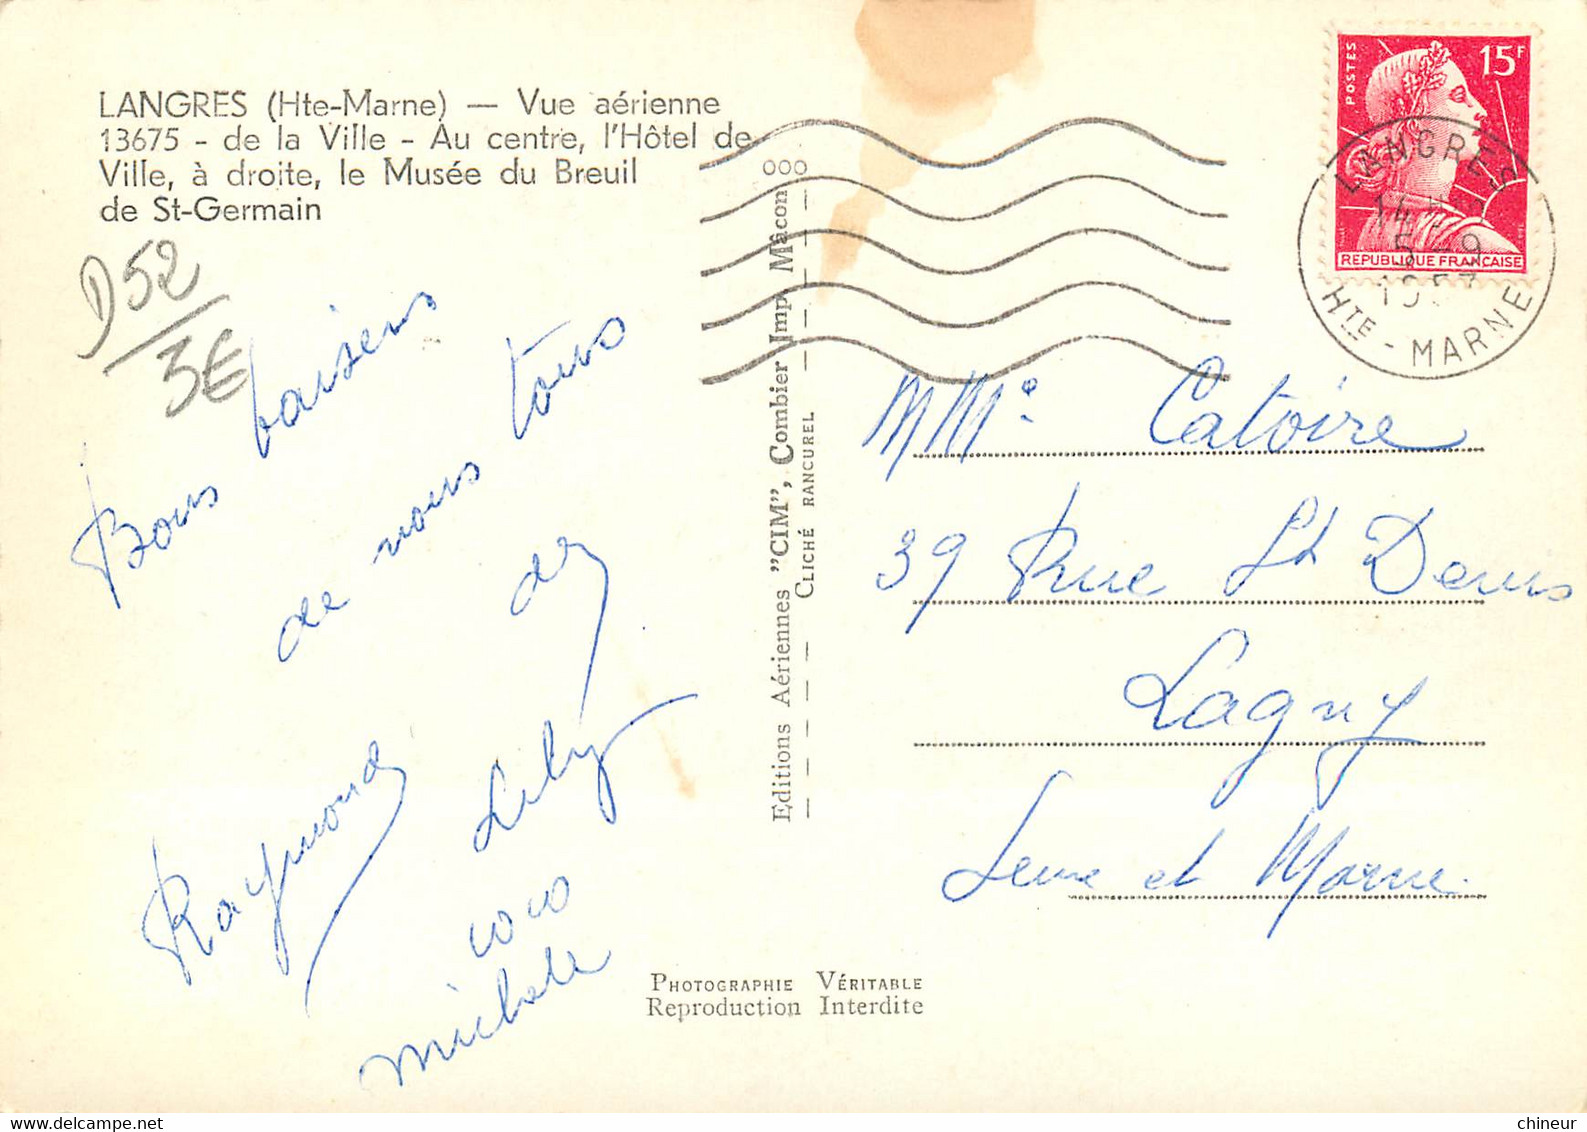 LANGRES (Hte-Marne) — Vue aérienne
13675 - de la Ville - Au centre, l'Hôtel de
Ville, à droite, le Musée du Breuil
de St-Germain
D52
3€
Bons baisers
de nous tous
de
Raymond
Coco
Michele
Editions Aériennes "CIM", Combier Imp. Mâcon
CLICHÉ RANCUREL
PHOTOGRAPHIE VÉRITABLE
Reproduction Interdite
POSTES
15F
REPUBLIQUE FRANÇAISE
LANGRES
5-9
HTE-MARNE
M Me Catoire
39 Rue St Denis
Lagny
Seine et Marne
chineur